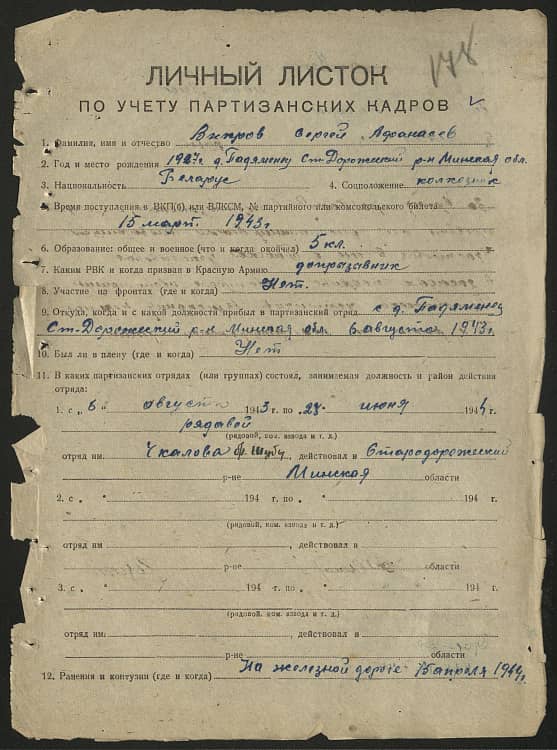 178
ЛИЧНЫЙ ЛИСТОК
ПО УЧЕТУ ПАРТИЗАНСКИХ КАДРОВ
1. Фамилия, имя и отчество Вихров Сергей Афанасев
2. Год и место рождения 1927г. д. Подяменец Ст-Дорожский р-н Минская обл.
3. Национальность Беларус 4. Соцположение колхозник
5. Время поступления в ВКП(б) или ВЛКСМ, № партийного или комсомольского билета
15 март. 1943г
6. Образование: общее и военное (что и когда окончил) 5 кл.
7. Каким РВК и когда призван в Красную Армию допразавник
8. Участие на фронтах (где и когда) Нет.
9. Откуда, когда и с какой должности прибыл в партизанский отряд с д. Подяменец
Ст-Дорожеский р-н Минская обл. 6 августа 1943г.
10. Был ли в плену (где и когда) Нет
11. В каких партизанских отрядах (или группах) состоял, занимаемая должность и район действия
отряда:
1. с „6" августа 1943 г. по „28" июня 1944 г.
рядавой
(рядовой, ком. взвода и т. д.)
отряд им. Чкалова бр. Шубы, действовал в Стародорожеский
р-не Минская области
2. с „ " 194 г. по „ " 194 г.
(рядовой, ком. взвода и т. д.)
отряд им. , действовал в
р-не области
3. с „ " 194 г. по „ " 194 г.
(рядовой, ком. взвода и т. д.)
отряд им. действовал в
р-не области
12. Ранения и контузии (где и когда) На железной дороге 15 апреля 1944г.